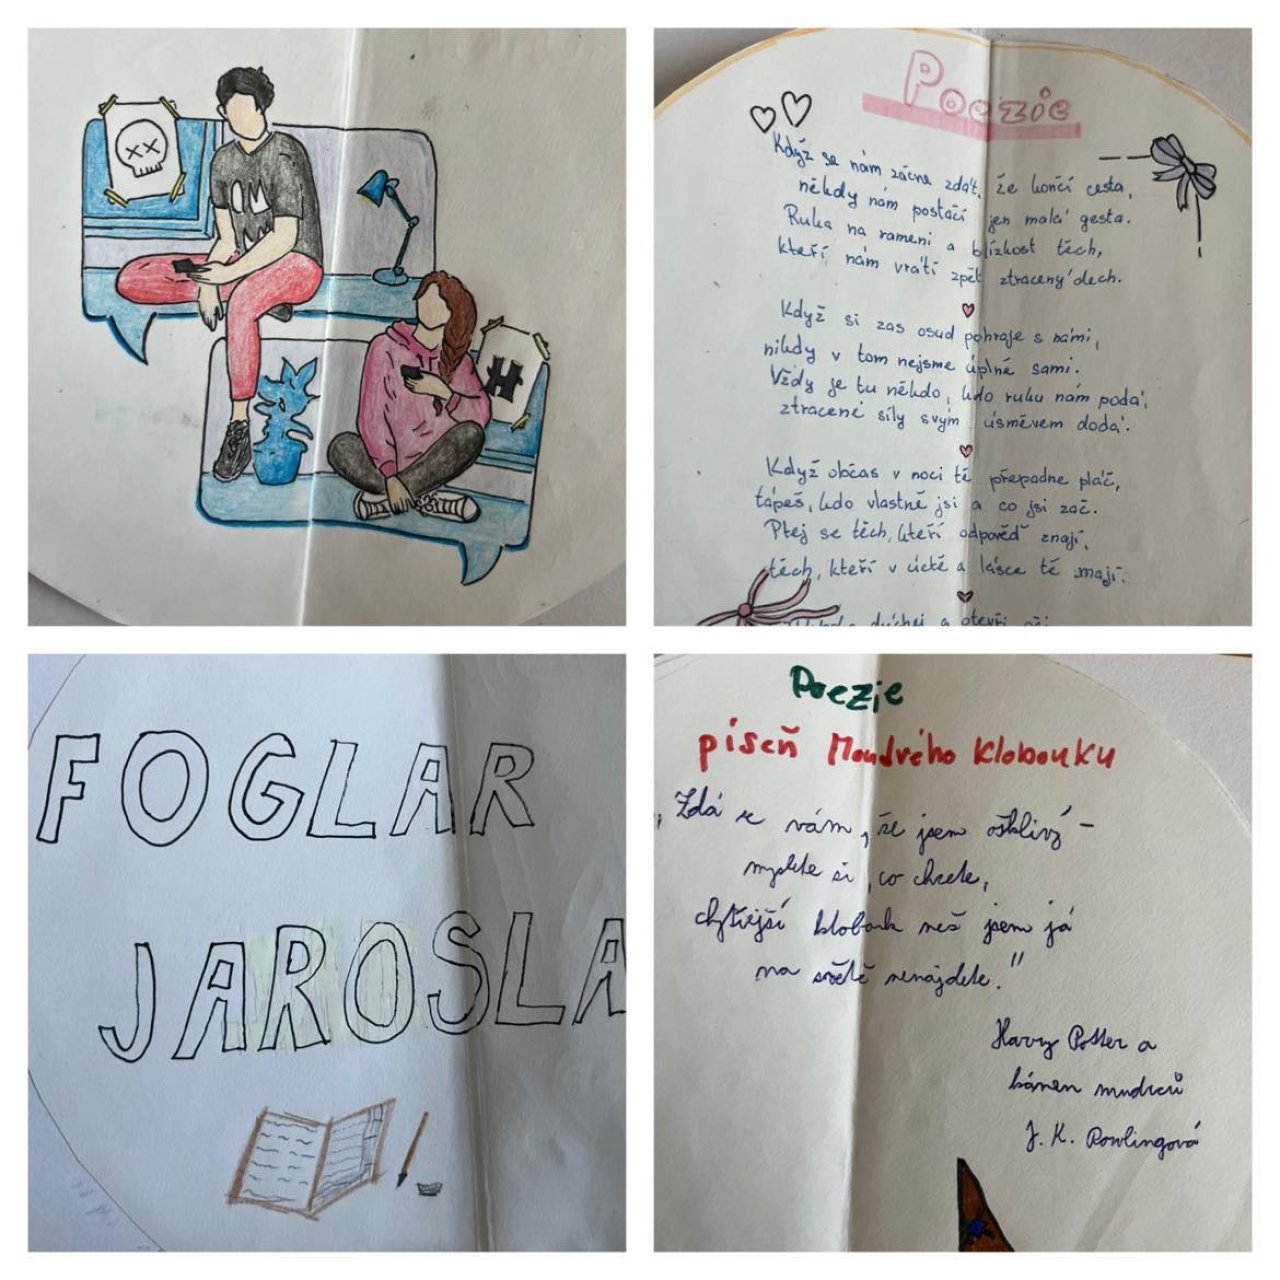 H
Poezie
Když se nám zácna zdát, že končí cesta,
někdy nám postačí jen malá gesta.
Ruka na rameni a blízkost těch,
kteří nám vrátí zpět ztracený dech.
Když si zas osud pohraje s námi,
nikdy v tom nejsme úplně sami.
Vždy je tu někdo, kdo ruku nám podá,
ztracené síly svým úsměvem dodá.
Když občas v noci tě přepadne pláč,
tápeš, kdo vlastně jsi a co jsi zač.
Ptej se těch, kteří odpověď znají,
těch, kteří v úctě a lásce tě mají.
dýchej a otevři oči
FOGLAR
JAROSLA
Poezie
píseň Moudrého Klobouku
„Zdá se vám, že jsem ošklivý -
myslete si, co chcete,
chytřejší klobouk než jsem já
na světě nenajdete."
Harry Potter a
kámen mudrců
J. K. Rowlingová